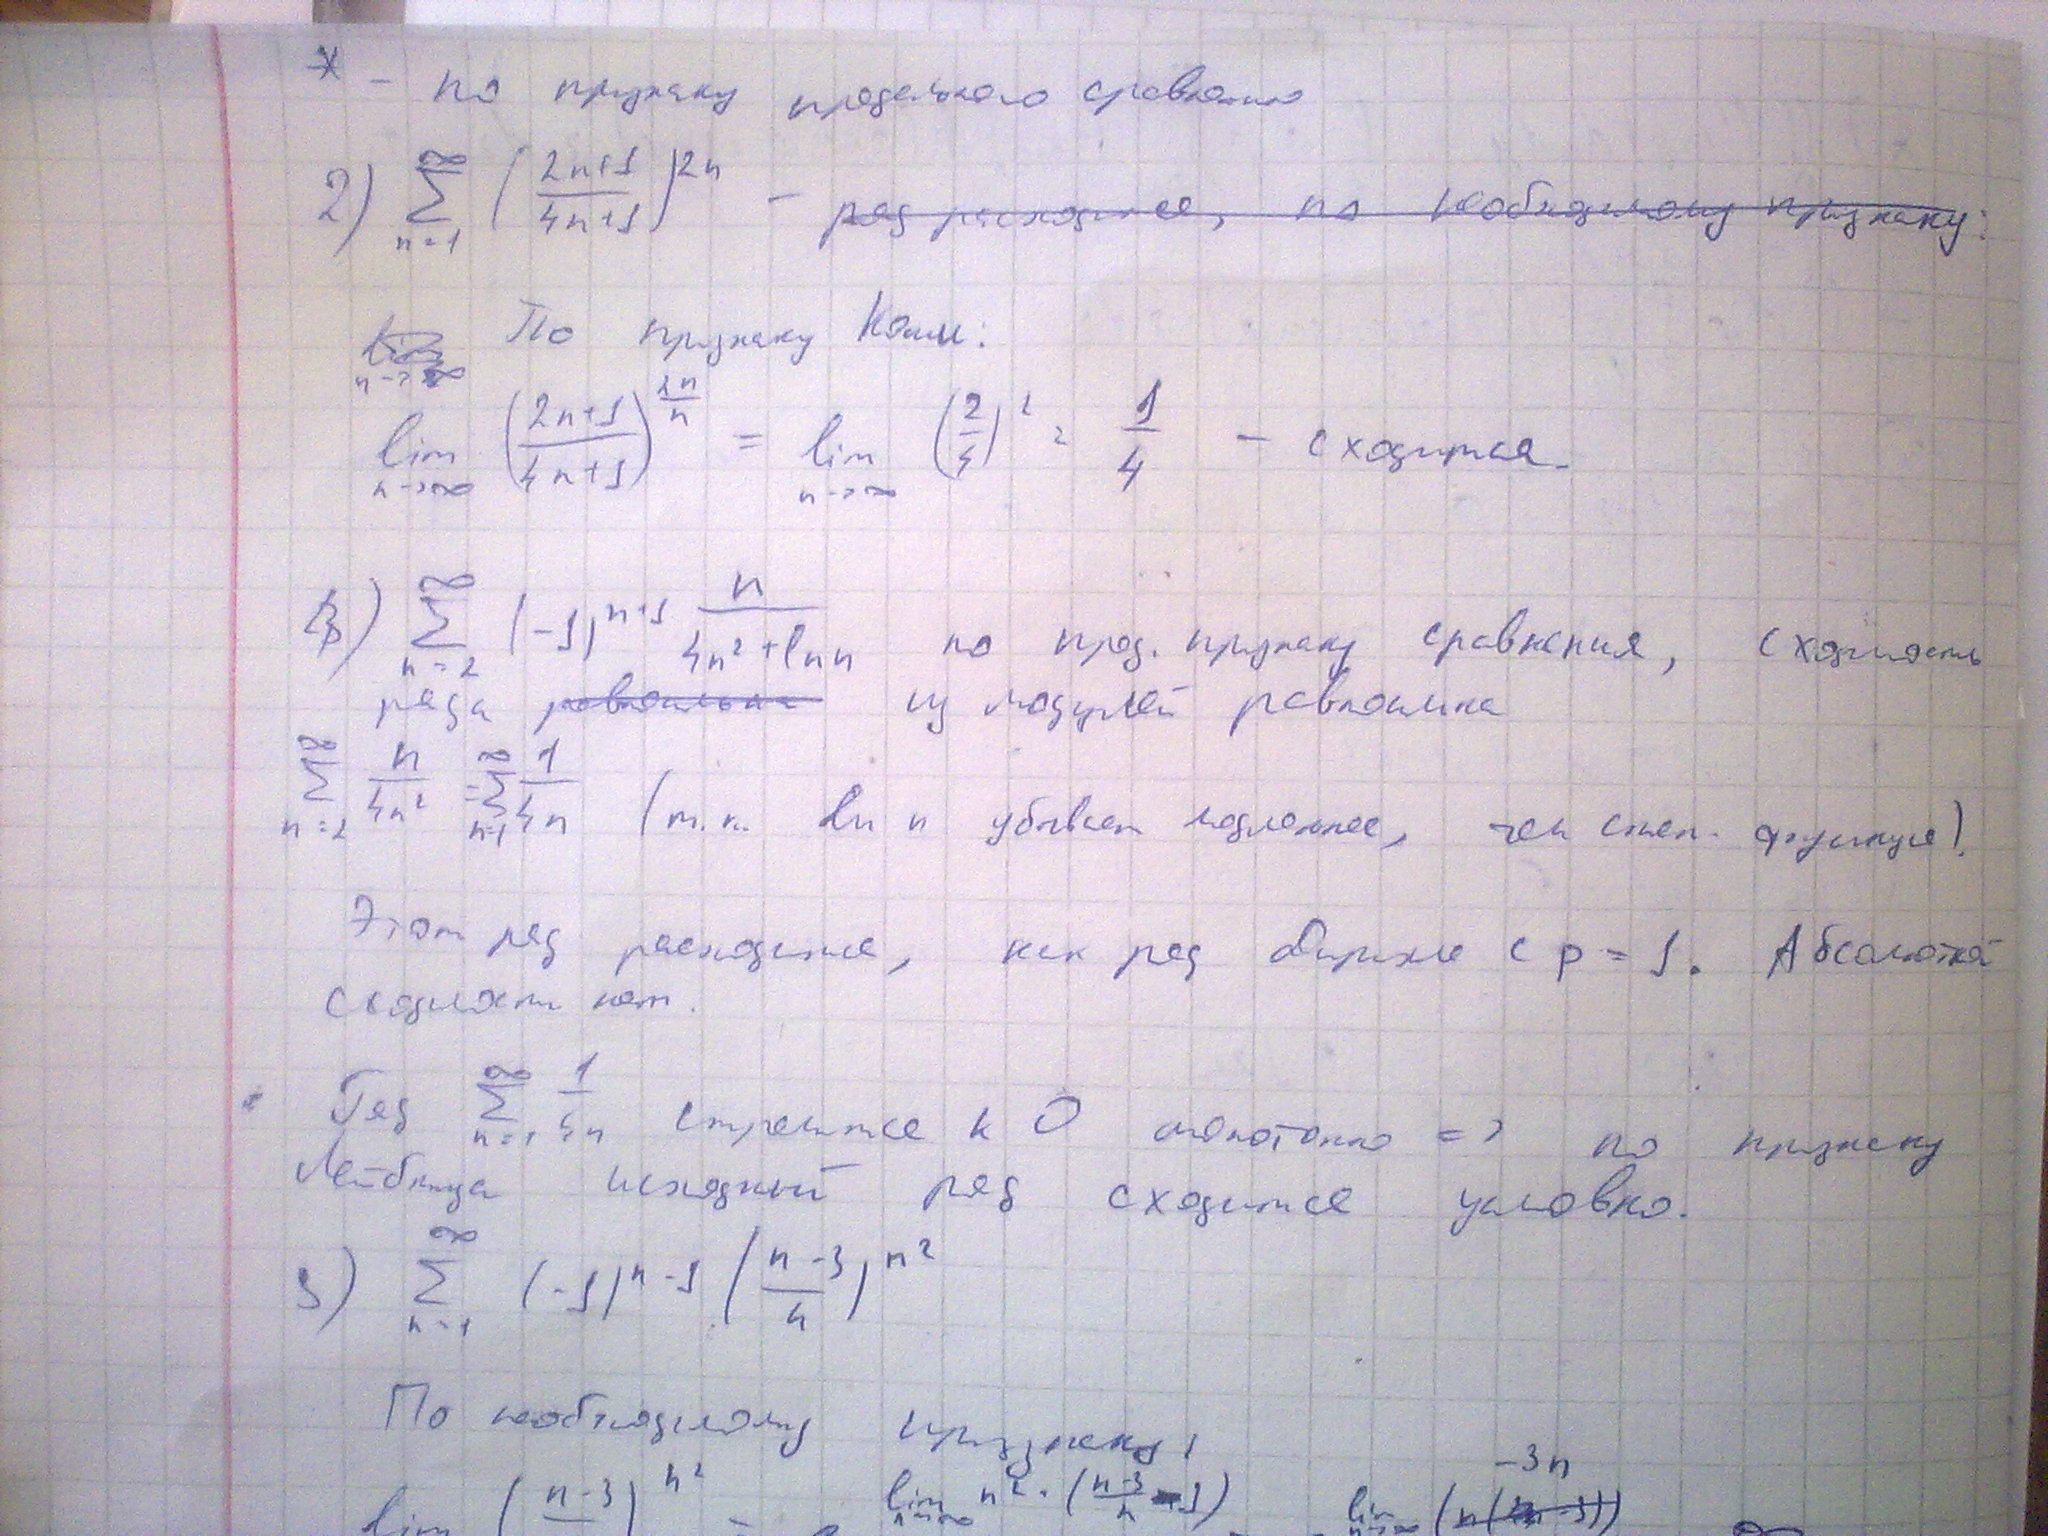 * – по признаку предельного сравнения
2) ∑_{n=1}^{∞} ((2n+1)/(4n+1))^{2n} – ряд расходится, по необходимому признаку:
lim n→∞ По признаку Коши:
lim_{n→∞} ((2n+1)/(4n+1))^{2n/n} = lim_{n→∞} (2/4)^2 = 1/4 – сходится.
) ∑_{n=2}^{∞} (-1)^{n+1} n/(4n²+ln n) по пред. признаку сравнения, сходимость
ряда равносильна из модулей равносильна
∑_{n=2}^{∞} n/4n² = ∑_{n=1}^{∞} 1/4n (т.к. ln n убывает медленнее, чем степ. функция).
Этот ряд расходится, как ряд Дирихле с p = 1. Абсолютной
сходимости нет.
Ряд ∑_{n=1}^{∞} 1/4n стремится к 0 монотонно => по признаку
Лейбница исходный ряд сходится условно.
3) ∑_{n=1}^{∞} (-1)^{n-1} ((n-3)/n)^{n²}
По необходимому признаку:
lim ((n-3)/)^{n²} = e^{lim_{n→∞} n²·((n-3)/n - 1)} = lim_{n→∞} (-3n